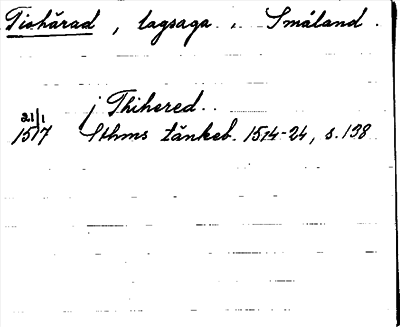 Tiohärad, lagsaga. Småland.
j Thihered..
21/1
1517 Sthms tänkeb. 1514-24, s. 138